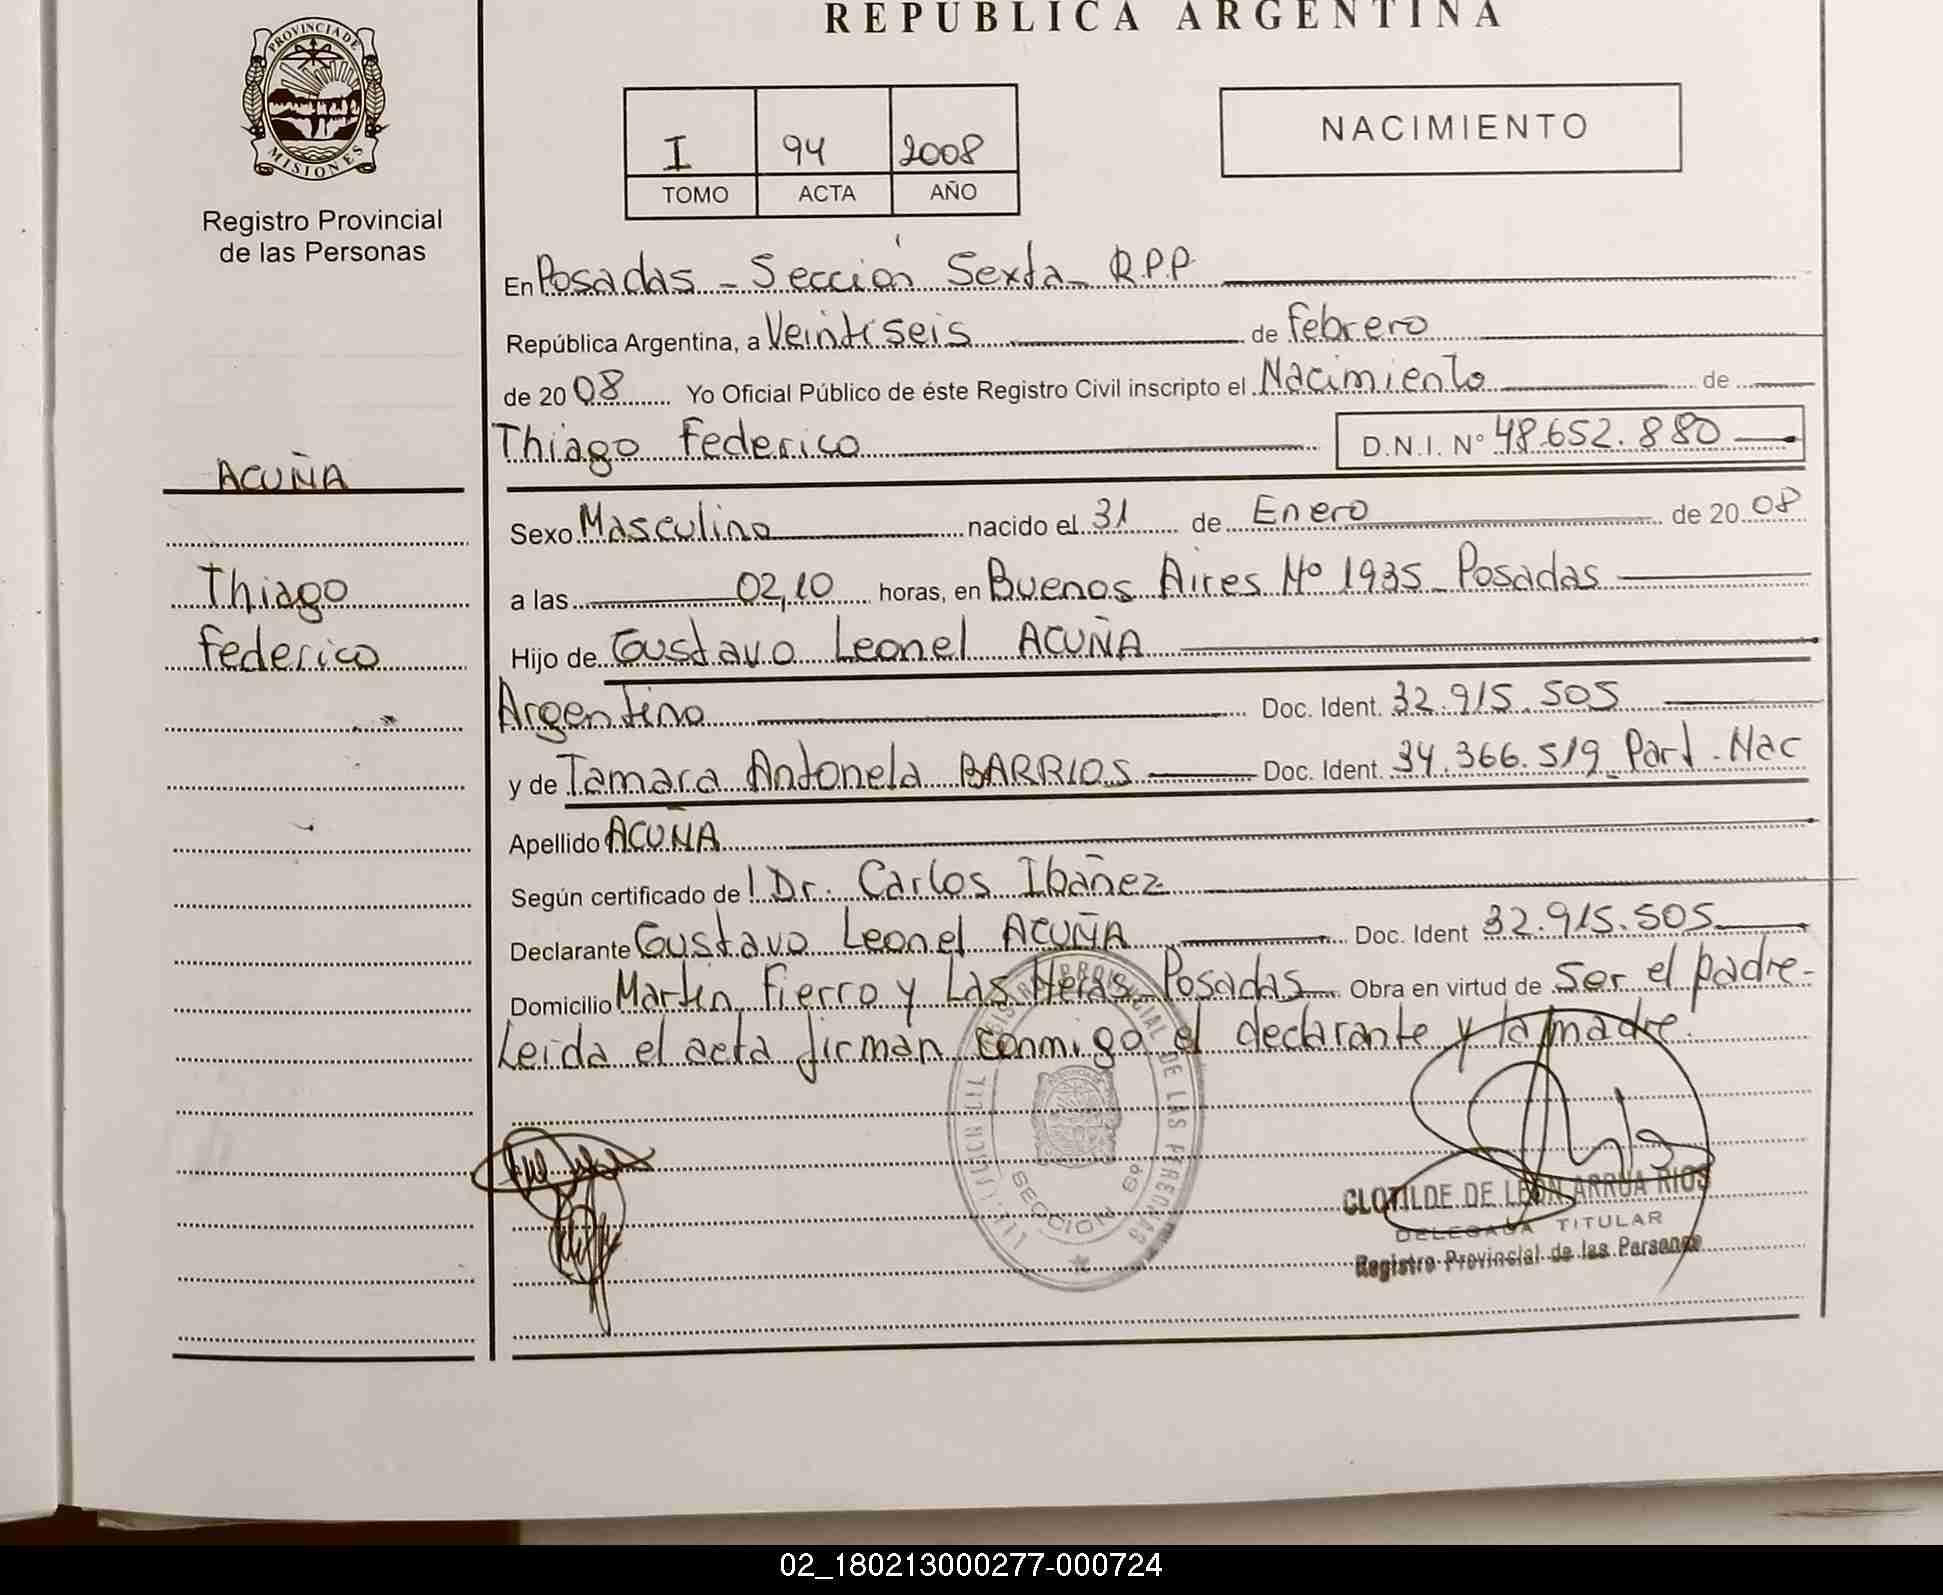 REPUBLICA ARGENTINA
PROVINCIA DE
MISIONES
Registro Provincial
de las Personas
I 94 2008
TOMO ACTA AÑO
NACIMIENTO
En Posadas - Sección Sexta - R.P.P.
República Argentina, a Veintiseis de febrero
de 2008 Yo Oficial Público de éste Registro Civil inscripto el Nacimiento de
Thiago Federico D.N.I. Nº 48.652.880
ACUÑA
Sexo Masculino nacido el 31 de Enero de 2008
Thiago
a las 02,10 horas, en Buenos Aires Nº 1935 - Posadas
Federico
Hijo de Gustavo Leonel ACUÑA
Argentino Doc. Ident. 32.915.505
y de Tamara Antonela BARRIOS Doc. Ident. 34.366.519 Part. Nac
Apellido ACUÑA
Según certificado de Dr. Carlos Ibañez
Declarante Gustavo Leonel ACUÑA Doc. Ident 32.915.505
Domicilio Martin Fierro y Las Heras - Posadas Obra en virtud de ser el padre -
Leida el acta firman conmigo el declarante y la madre.
PROVINCIAL DE LAS PERSONAS
SECCION 6º
CLOTILDE DE LEON ARRUA RIOS
DELEGADA TITULAR
Registro Provincial de las Personas
02_180213000277-000724